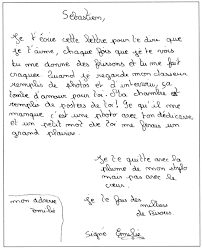 Sébastien,
Je t'écris cette lettre pour te dire que
je t'aime, chaque fois que je te vois
tu me donne des frissons et tu me fait
craquer quand je regarde mon classeur
remplis de photos et d'interview, ça
d'amour pour toi. Ma chambre est
remplis de posters de toi! Ce qu'il me
manque c'est une photo avec ton dédicace,
et un petit mot de toi me ferais un
grand plaisir.
Je te quitte avec
la plume de mon stylo
mais pas avec le
cœur.
mon adresse
Je te fais des
milliers
de bisous.
Signé Emilie